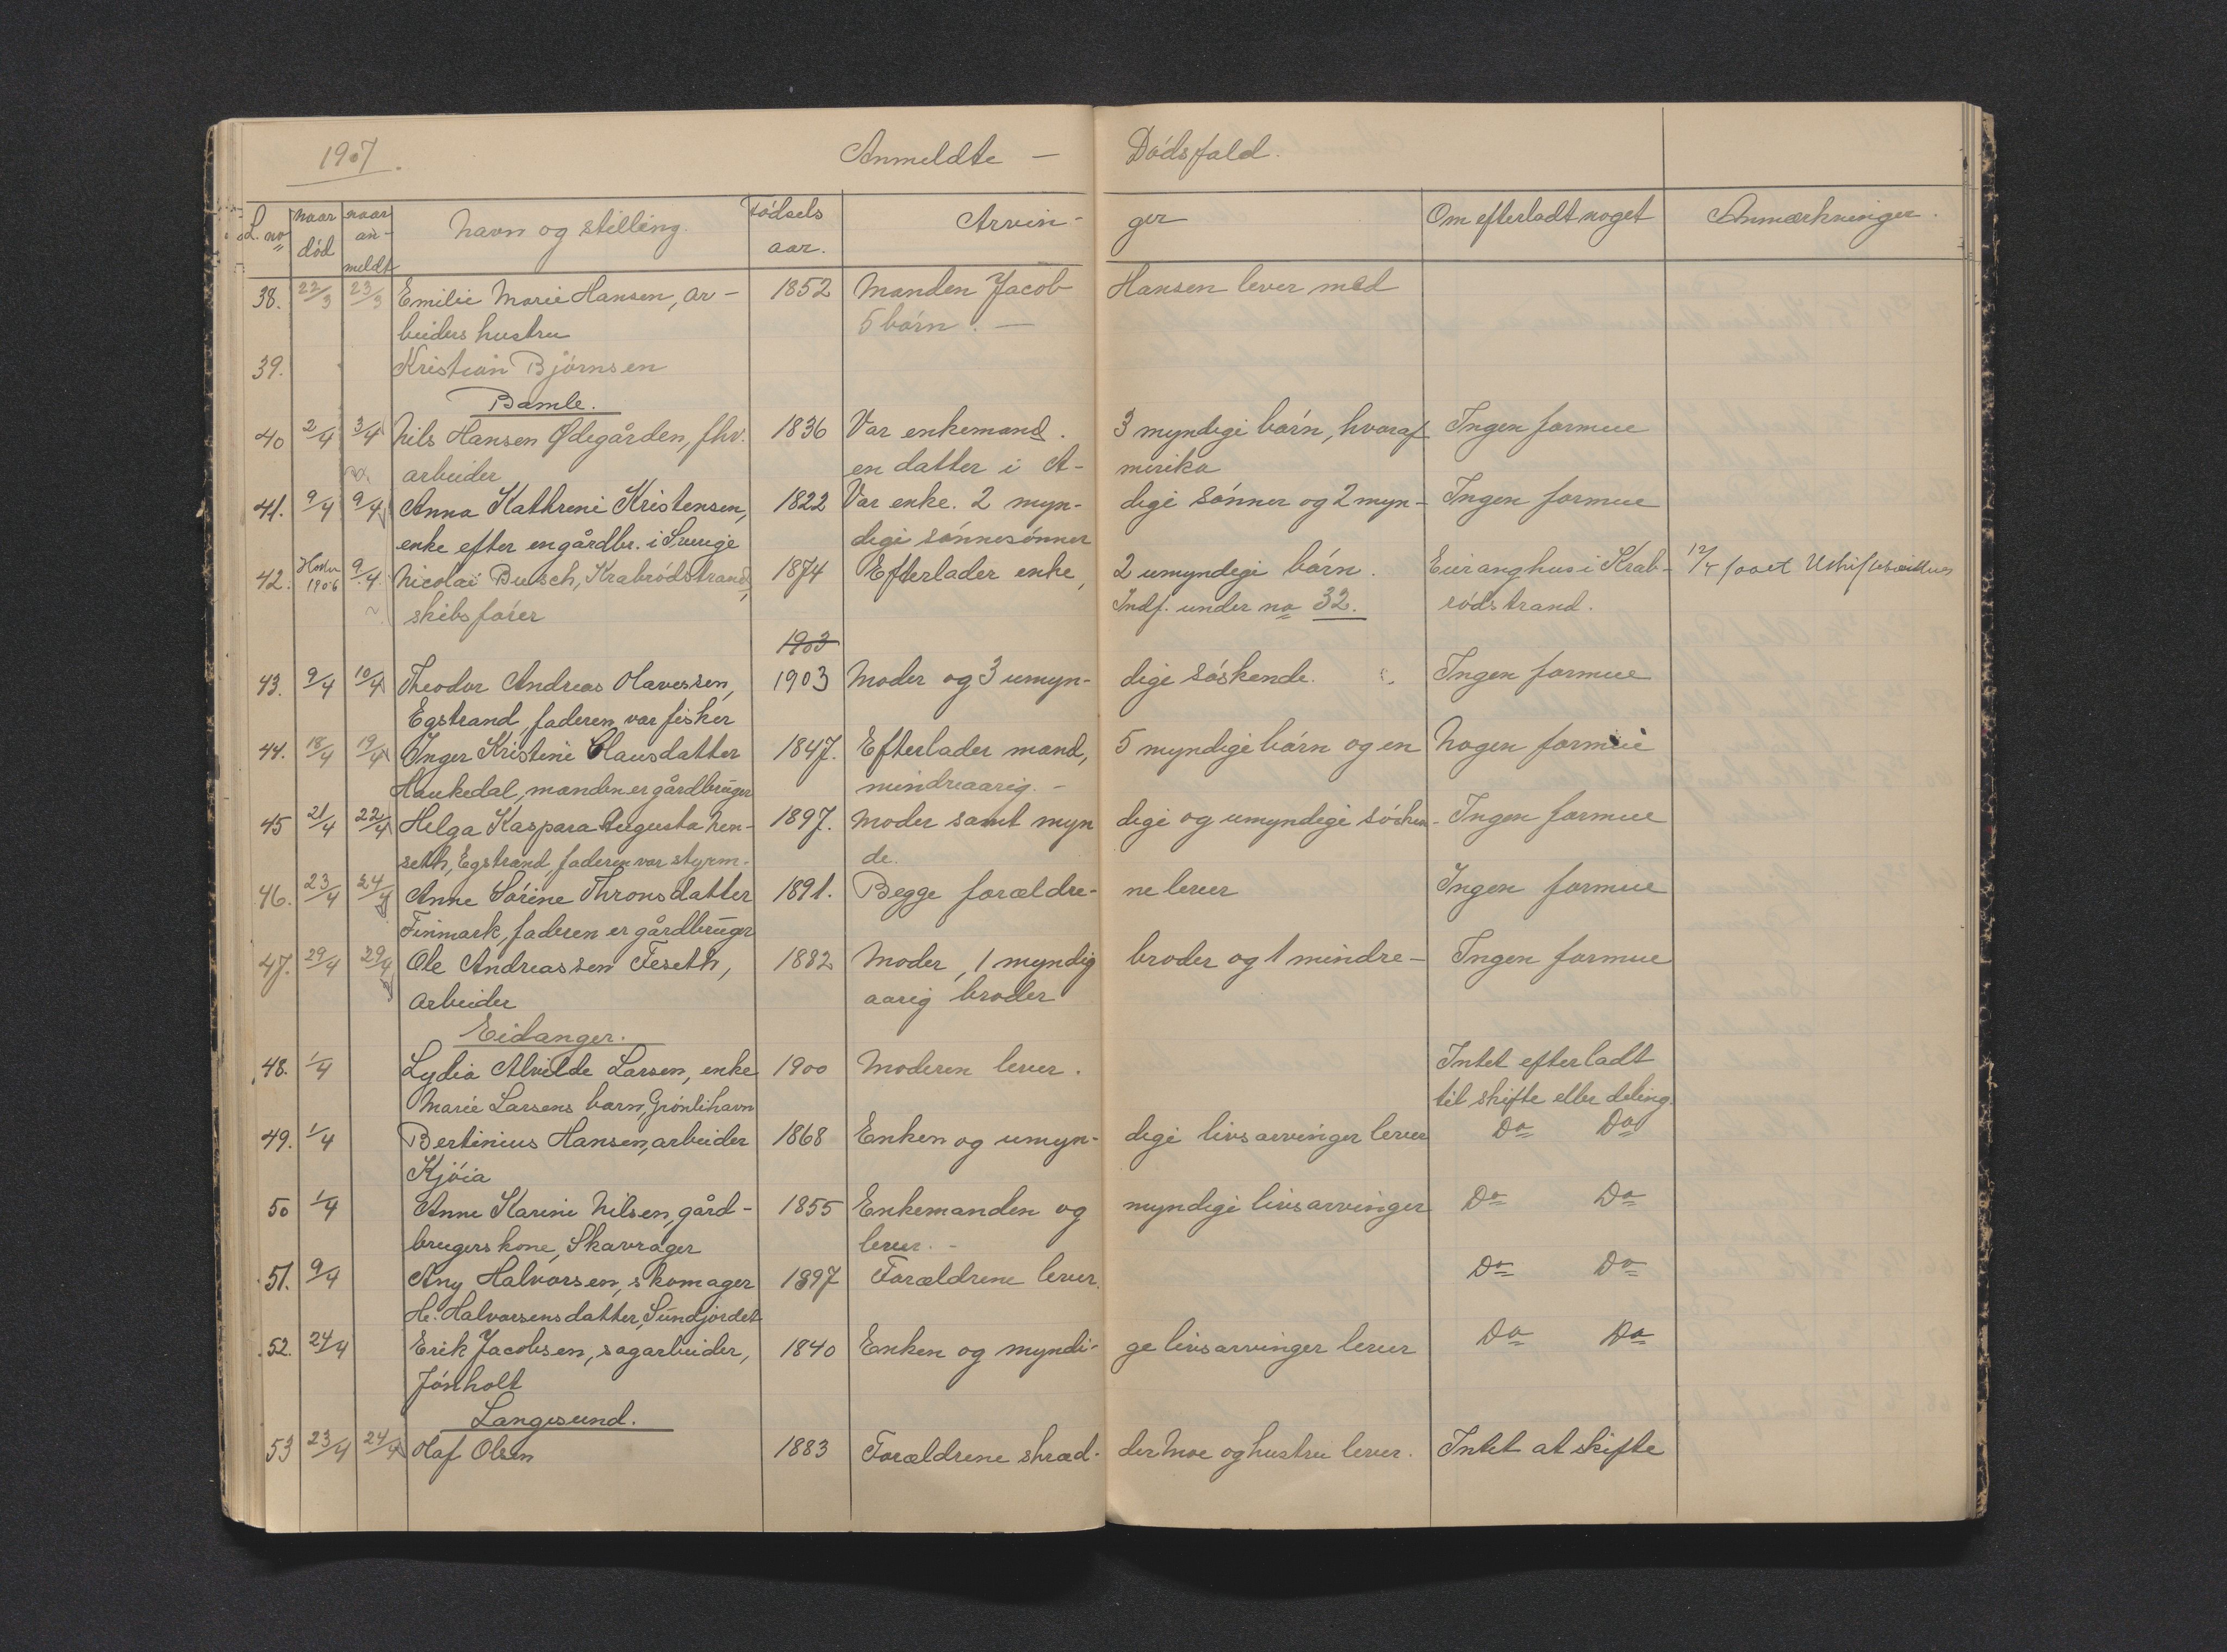 1907. Anmeldte — Dödsfald.
L. no naar död naar anmeldt Navn og stilling. Födsels aar. Arvinger Om efterladt noget Anmærkninger.
38. 22/3 23/3 Emilie Marie Hansen, ar- 1852 Manden Jacob Hansen lever med
beiders hustru 5 börn. —
39. Kristian Björnsen
Bamle.
40 2/4 3/4 Nils Hansen Ödegården, fhv. 1836 Var enkemand. 3 myndige börn, hvoraf Ingen formue
arbeider en datter i A- merika
41. 9/4 9/4 Anna Kathrine Kristensen, 1822 Var enke. 2 myn- dige sönner og 2 myn- Ingen formue
enke efter en gårdbr. i Sverige dige sönnesönner
42. Hösten 1906 9/4 Nicolai Busch, Krabrödstrand, 1874 Efterlader enke, 2 umyndige börn. Eier anghus i Krab- 12/4 faaet
skibsförer Indf. under no 32. rödstrand.
1903
43. 9/4 10/4 Theodor Andreas Olavessen, 1903 Moder og 3 umyn- dige söskende. Ingen formue
Egstrand, faderen var fisker
44. 18/4 19/4 Inger Kristine Clausdatter 1847. Efterlader mand, 5 myndige börn og en Nogen formue
Haukedal, manden er gårdbruger mindreaarig. -
45 21/4 22/4 Helga Kaspara Augusta Nen- 1897. Moder samt myn dige og umyndige sösken- Ingen formue
seth, Egstrand, faderen var styrm. de.
46. 23/4 24/4 Anne Sörine Thronsdatter 1891. Begge forældre- ne lever Ingen formue
Finmark, faderen er gårdbruger
47. 29/4 29/4 Ole Andreassen Feseth, 1882 Moder, 1 myndig broder og 1 mindre- Ingen formue
arbeider aarig broder
Eidanger.
48. 1/4 Lydia Alvilde Larsen, enke 1900 Moderen lever. Intet efterladt
Marie Larsens barn, Grönlihavn til skifte eller deling.
49. 1/4 Bertinius Hansen, arbeider 1868 Enken og umyn- dige livsarvinger lever Do Do
Kjöia
50 1/4 Anne Karine Nilsen, gård- 1855 Enkemanden og myndige livsarvinger Do Do
brugers kone, Skavrager lever. -
51. 9/4 Any Halvorsen, skomager 1897 Forældrene lever. Do Do
H. Halvorsens datter, Sundjordet
52. 24/4 Erik Jacobsen, sagarbeider, 1840 Enken og myndi- ge livsarvinger lever Do Do
Jönholt
Langesund.
53 23/4 24/4 Olaf Olsen 1883 Forældrene skræd- der Moe og hustru lever. Intet at skifte